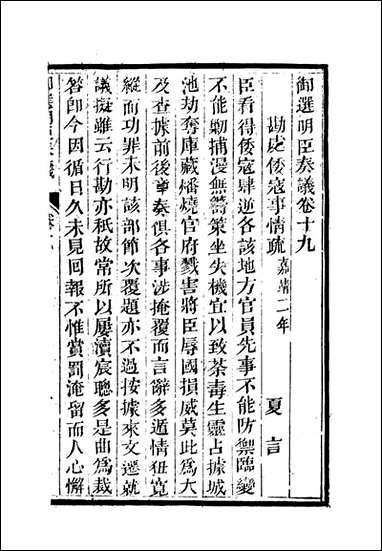 御選明臣奏議卷十九
勘處倭寇事情疏嘉靖二年
夏言
臣看得倭寇肆逆各該地方官員先事不能防禦臨變
不能勦捕漫無籌策坐失機宜以致荼毒生靈占據城
池劫奪庫藏燔燒官府戮害將臣辱國損威莫此為大
及查據前後章奏俱各事涉掩覆而言辭多遁情狂寬
縱而功罪未明該部節次覆題亦不過按據來文遷就
議擬雖云行勘亦秖故常所以屢瀆宸聰多是曲為裁
答卽今因循日久未見回報不惟賞罰淹留而人心懈